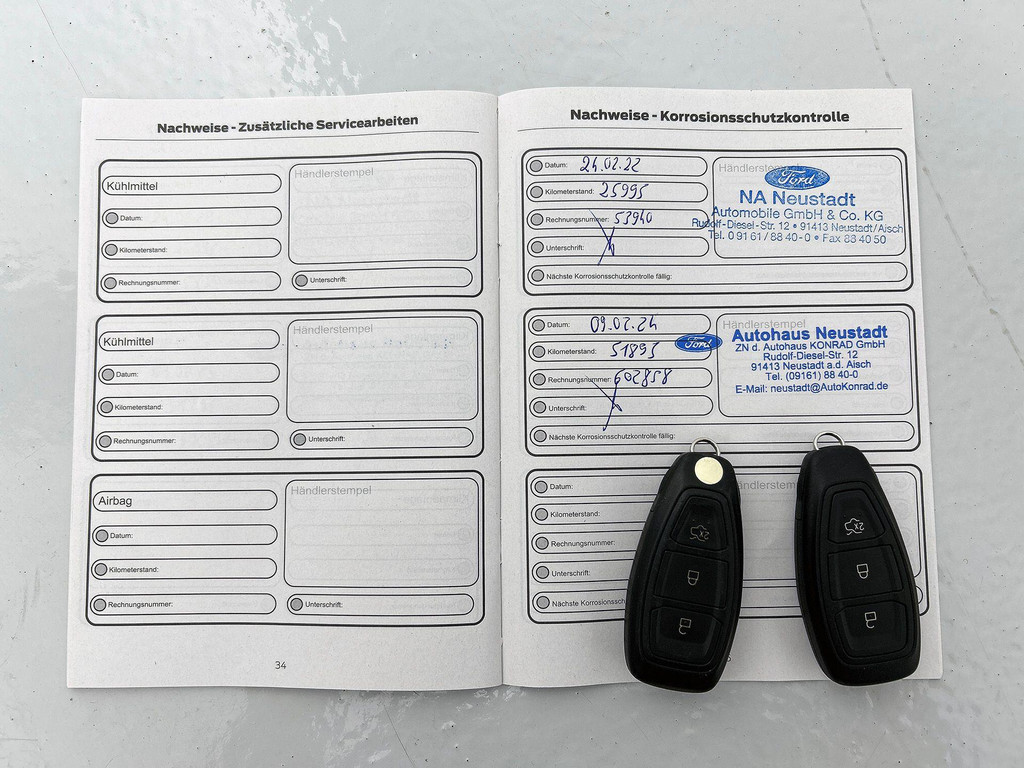 Nachweise - Zusätzliche Servicearbeiten
Kühlmittel
Händlerstempel
Datum:
Kilometerstand:
Rechnungsnummer:
Unterschrift:
Kühlmittel
Händlerstempel
Datum:
Kilometerstand:
Rechnungsnummer:
Unterschrift:
Airbag
Händlerstempel
Datum:
Kilometerstand:
Rechnungsnummer:
Unterschrift:
34
Nachweise - Korrosionsschutzkontrolle
Datum: 24.02.22
Kilometerstand: 25995
Rechnungsnummer: 53940
Unterschrift:
Nächste Korrosionsschutzkontrolle fällig:
Händlerstempel
Ford
NA Neustadt
Automobile GmbH & Co. KG
Rudolf-Diesel-Str. 12 • 91413 Neustadt/Aisch
Tel. 0 91 61 / 88 40 - 0 • Fax 88 40 50
Datum: 09.02.24
Kilometerstand: 51895
Rechnungsnummer: 602858
Unterschrift:
Nächste Korrosionsschutzkontrolle fällig:
Händlerstempel
Ford
Autohaus Neustadt
ZN d. Autohaus KONRAD GmbH
Rudolf-Diesel-Str. 12
91413 Neustadt a.d. Aisch
Tel. (09161) 88 40-0
E-Mail: neustadt@AutoKonrad.de
Datum:
Kilometerstand:
Rechnungsnummer:
Unterschrift:
Nächste
2x
2x